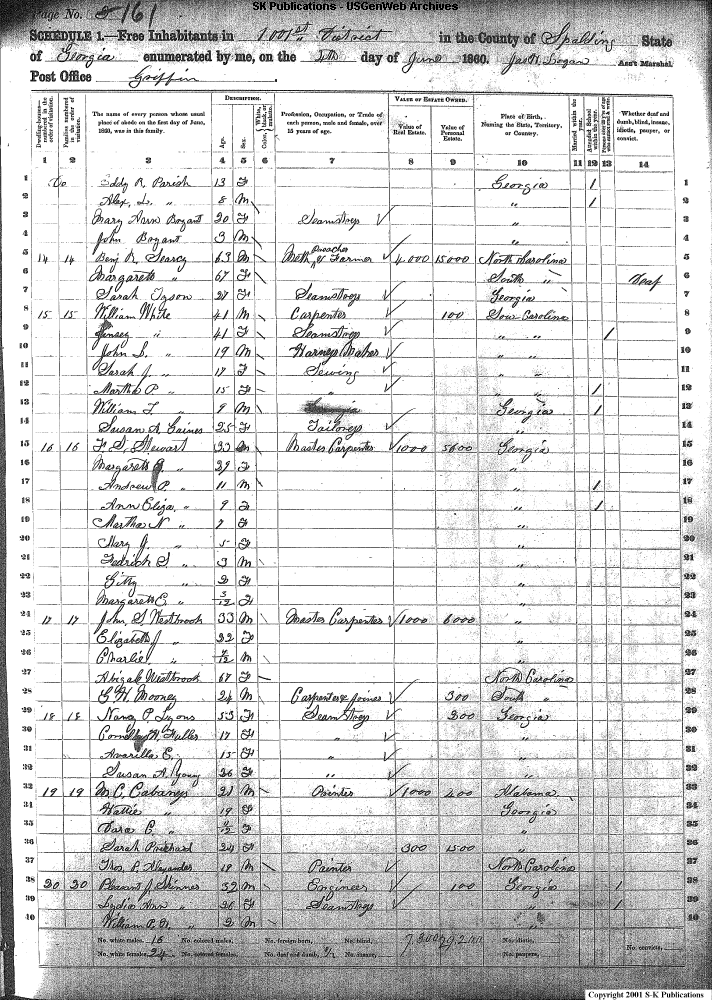 SK Publications - USGenWeb Archives
Page No. 161
SCHEDULE 1.—Free Inhabitants in 1001st District in the County of Spalding State
of Georgia enumerated by me, on the day of June 1860. Ass't Marshal.
Post Office Griffin
Dwelling-houses— numbered in the order of visitation.
Families numbered in the order of visitation.
The name of every person whose usual place of abode on the first day of June, 1860, was in this family.
DESCRIPTION.
Age.
Sex.
Color, White, black, or mulatto.
Profession, Occupation, or Trade of each person, male and female, over 15 years of age.
VALUE OF ESTATE OWNED.
Value of Real Estate.
Value of Personal Estate.
Place of Birth, Naming the State, Territory, or Country.
Married within the year.
Attended School within the year.
Whether deaf and dumb, blind, insane, idiotic, pauper, or convict.
1 2 3 4 5 6 7 8 9 10 11 12 13 14
1 Eddy R. Parish 13 F Georgia 1 1
2 Alex. L. " 8 M " 1 2
3 Mary Ann Bryant 20 F Seamstress " 3
4 John Bryant 3 M " 4
5 14 14 Benj R. Searcy 63 M Meth Preacher & Farmer 4000 15000 North Carolina 5
6 Margarett " 67 F South " Deaf 6
7 Sarah Tyson 27 F Seamstress Georgia 7
8 15 15 William White 41 M Carpenter 100 Sou Carolina 8
9 " 41 F Seamstress " " 1 9
10 John S. " 19 M Harness Maker " " 10
11 Sarah J. " 17 F Sewing " " 11
12 Martha P. " 15 F " " " 1 12
13 William T. " 9 M Georgia 1 13
14 Susan A. Gaines 25 F Tailoress " 14
15 16 16 F. S. Stewart 33 M Master Carpenter 1000 5600 Georgia 15
16 Margarett " 29 F " 16
17 Andrew P. " 11 M " 1 17
18 Ann Eliza " 9 F " 1 18
19 Martha N " 7 F " 19
20 Mary J. " 5 F " 20
21 Fedrick S " 3 M " 21
22 Gitty " 2 F " 22
23 Margarett E. " 3/12 F " 23
24 17 17 John S. Westbrook 33 M Master Carpenter 1000 6000 " 24
25 Elizabeth J " 22 F " 25
26 Charlie " M " 26
27 Abigale Westbrook 67 F North Carolina 27
28 G H. Mooney 24 M Carpenter & Joiner 300 South " 28
29 18 18 Nancy P. Lyons 53 F Seamstress 200 Georgia 29
30 Fuller 17 F " " 30
31 Amarilla E. 15 F " " 31
32 Susan A. Young 26 F " " 32
33 19 19 M. C. Cabaness 21 M Painter 1000 400 Alabama
34 Hattie " 19 F Georgia
35 E. " F "
36 Sarah Prichard 24 F 300 1500 "
37 Thos. P. Alexander 19 M Painter North Carolina
38 20 20 Pleasant J. Skinner 32 M Engineer 100 Georgia 1
39 Lydia Ann " 26 F Seamstress " 1
40 William " 2 M "
No. white males, 16 No. colored males, No. foreign born, No. blind, No. idiotic, No. convicts,
No. white females, 24 No. colored females, No. deaf and dumb, No. insane, No. paupers,
Copyright 2001 S-K Publications